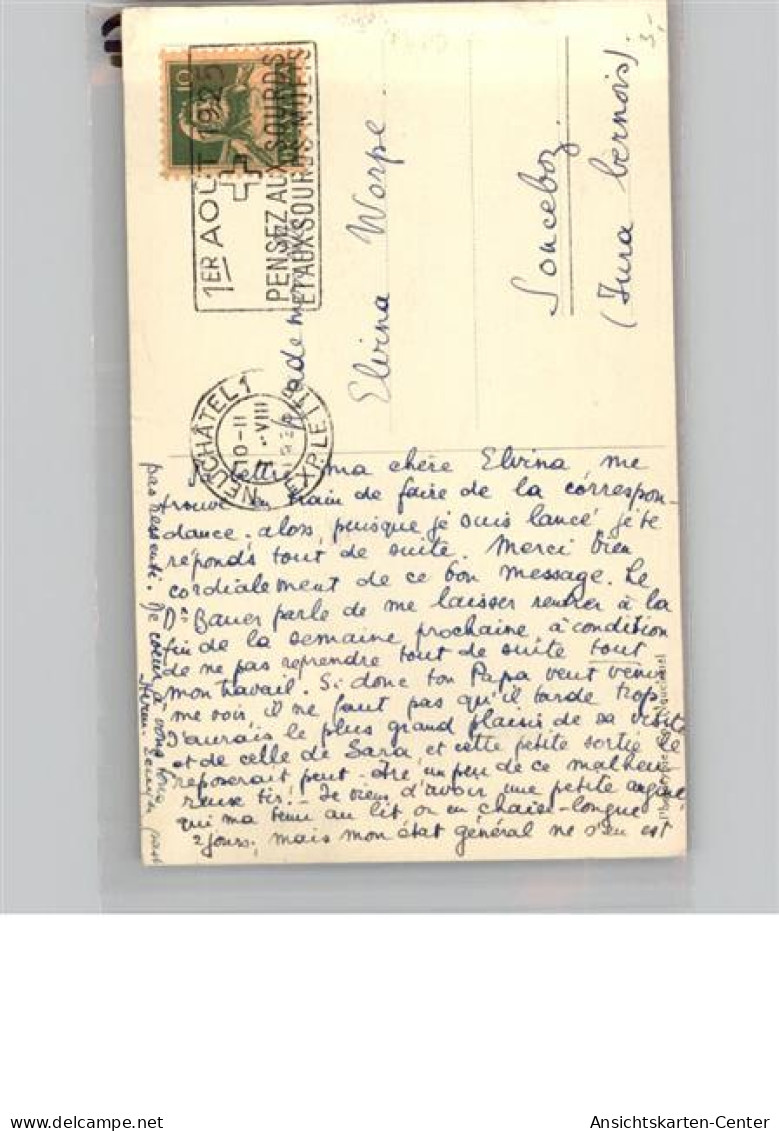 3.-
10
1ER AOÛT 1925
PENSEZ AUX SOURDS
ET AUX SOURDS-MUETS
NEUCHÂTEL 1
10-11
VIII
EXP. LETTR
Elvina Worpe.
Sonceboz.
(Jura bernois)
lettre, ma chère Elvina, me
trouve en train de faire de la correspon-
dance. alors, puisque je suis lancé, je te
réponds tout de suite. Merci bien
cordialement de ce bon message. Le
Dr Bauer parle de me laisser rentrer à la
fin de la semaine prochaine, à condition
de ne pas reprendre tout de suite tout
mon travail. Si donc ton Papa veut venir
me voir, il ne faut pas qu'il tarde trop.
J'aurais le plus grand plaisir de sa visite
et de celle de Sara, et cette petite sortie le
reposerait peut-être un peu de ce malheu-
reux tir! - Je viens d'avoir une petite angine
qui m'a tenu au lit, or en chaise-longue
2 jours, mais mon état général ne s'en est
pas ressenti. De cœur à vous tous,
Ansichtskarten-Center